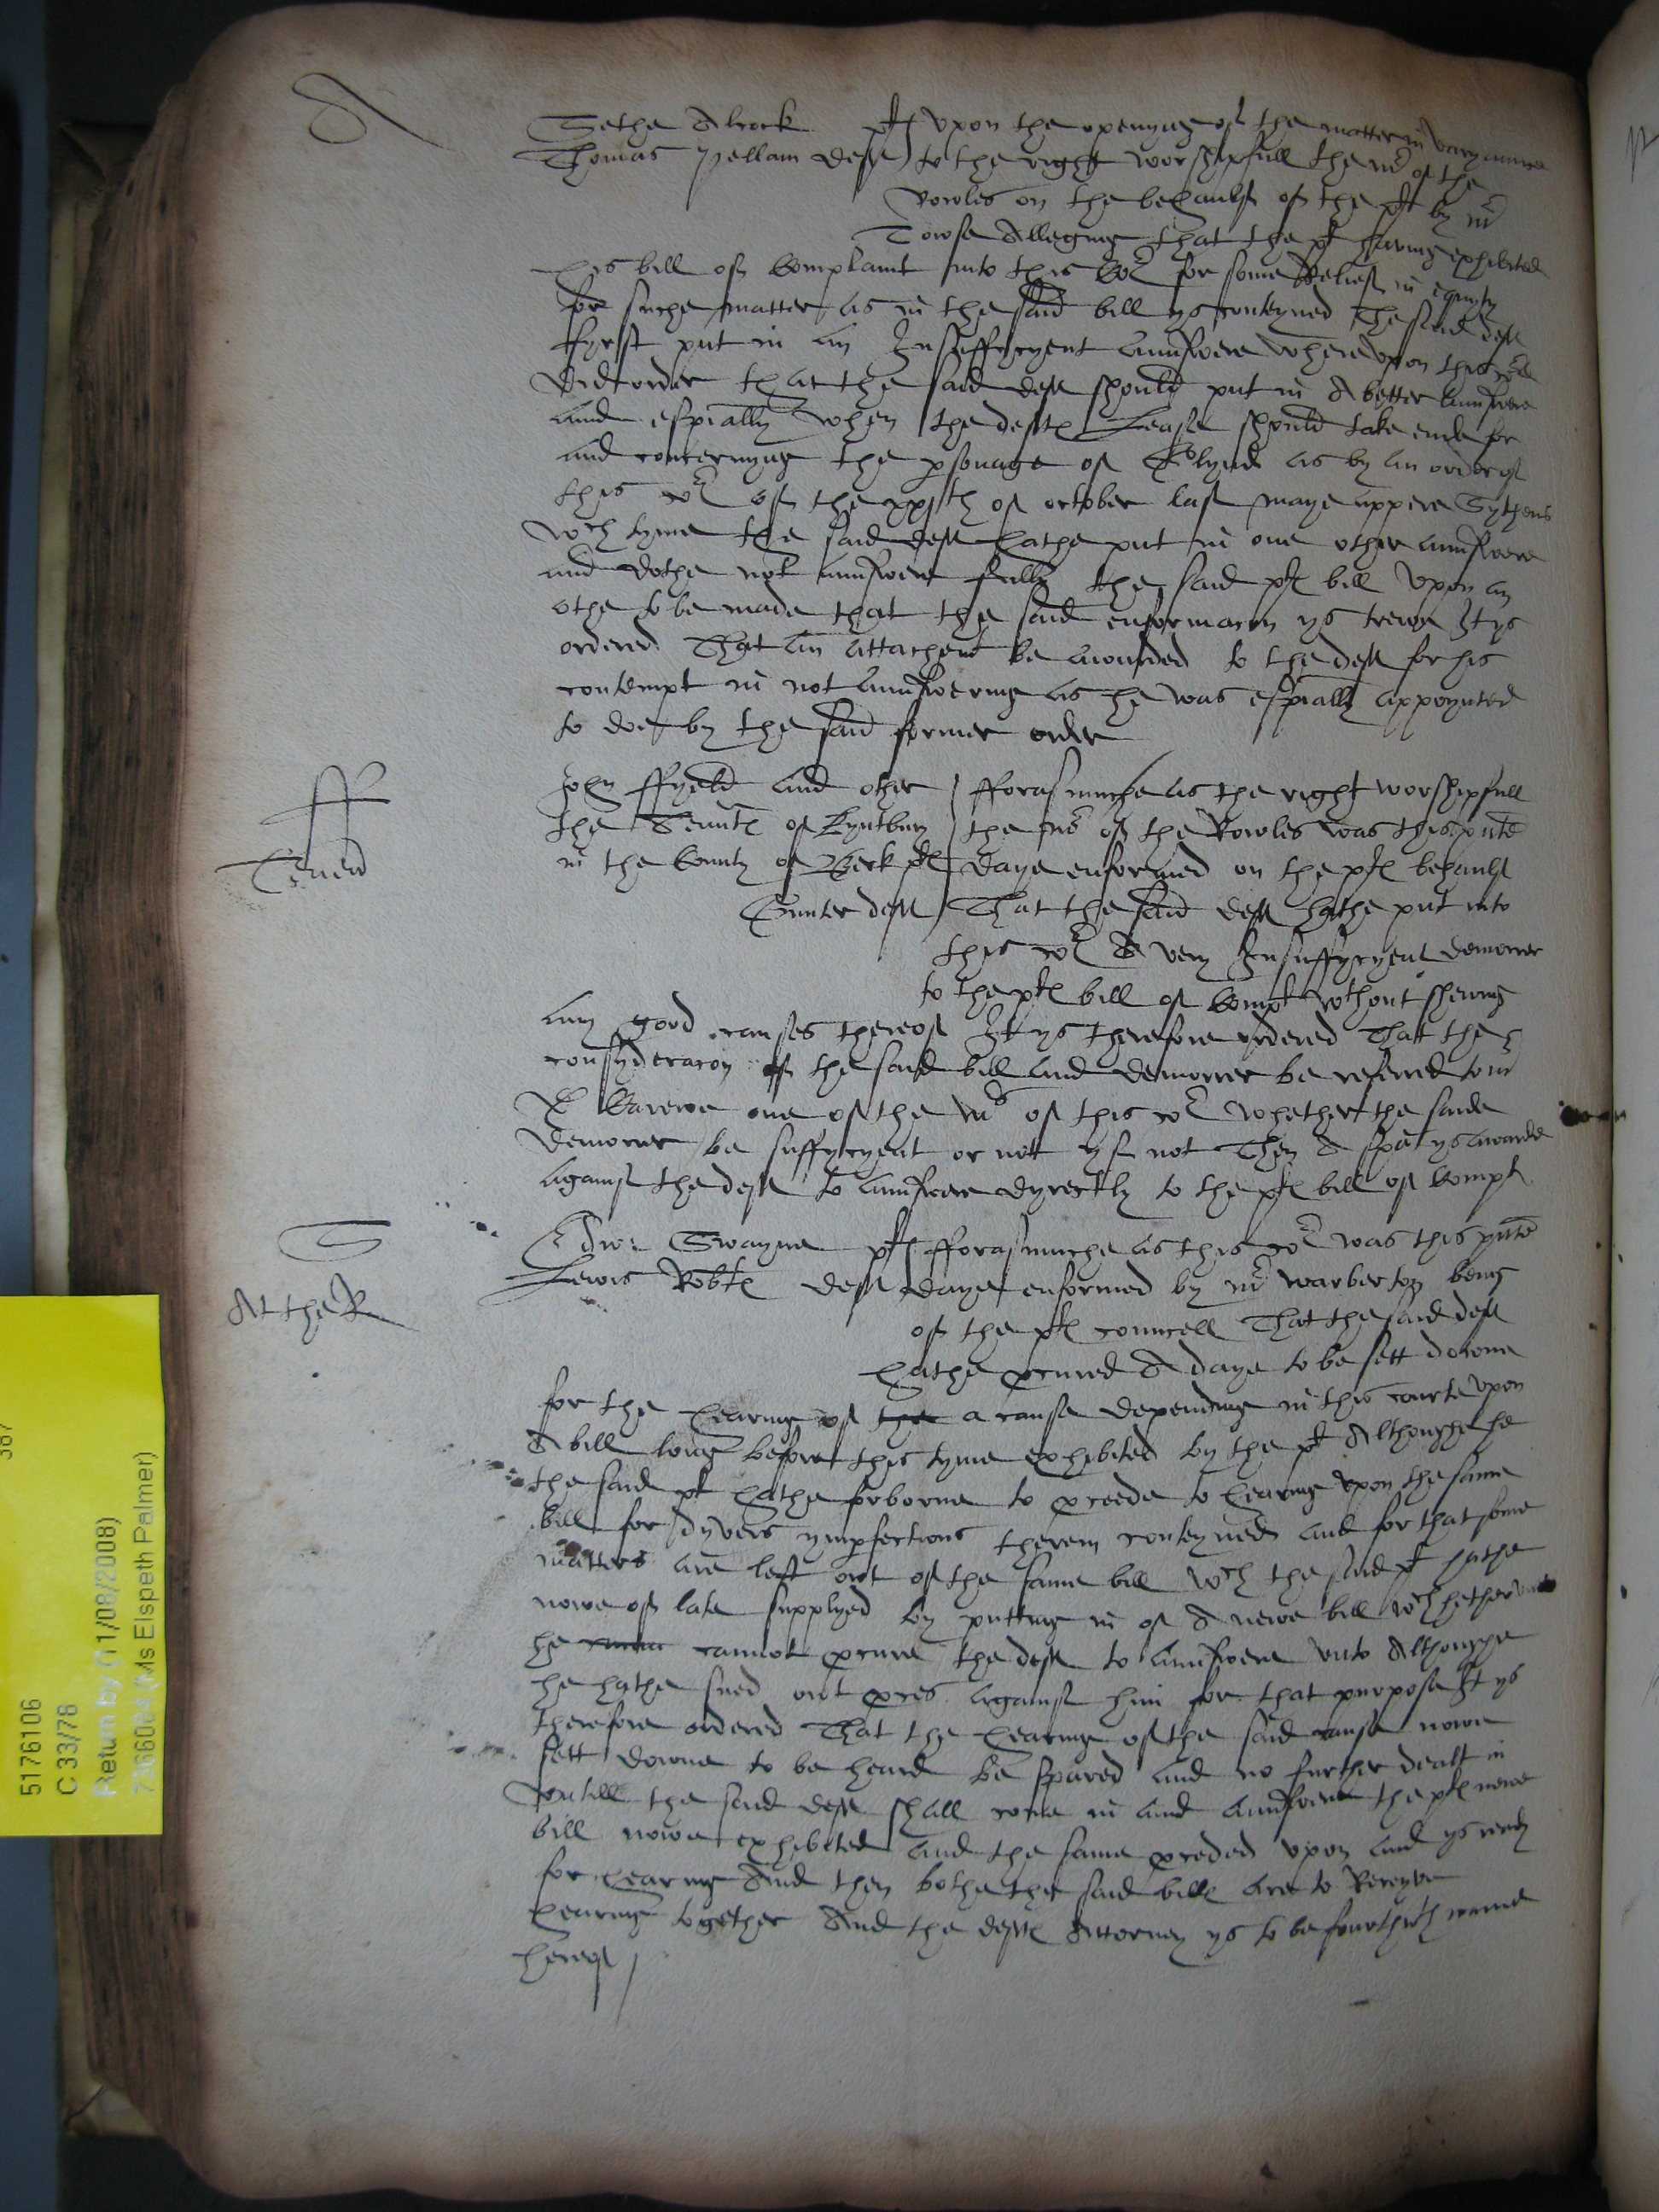 A
Sethe Alcock plt Upon the openyng of the matter in varyaunce
Thomas Pellam deft to the right worshipfull the mr of the
Rowles on the behaulf of the plt by mr
Towse Alleging that the plt having exhibited
his bill of Complaint into this Cort for some Relief in equity
for suche matter as in the said bill ys conteyned The said deft
fyrst put in an Insuffycyent aunswere whereupon this cort
did order that the said deft should put in A better aunswere
and espially when the defts Lease should take ende for
and concernyng the psonage of as by an order of
this cort of the xxjth of october last maye appere Sythens
wch tyme the said deft hathe put in one other aunswere
and dothe not aunswere fully the said plts bill Upon an
othe to be made that the said enformacon ys trewe It ys
ordered That an attachent be awarded to the deft for his
contempt in not aunswering as he was espially appoynted
to doe by the said former order
ff
John ffyeld and other fforasmuche as the right worshipfull
the Tennts of Kyntbury the mr of the Rowles was this pnte
in the County of Berk plts daye enformed on the plts behaulf
Gunter deft That the said deft hathe put into
this cort A very Insuffycyent demorrer
to the plts bill of Complt wthout shewing
any good causes thereof It ys therefore ordered That the
consyderacon of the said bill and demorrer be referred to mr
D Carewe one of the mrs of this cort whether the saide
demorrer be suffycyent or nott yf not Then A spa ys awarded
against the deft to aunswere dyrectly to the plts bill of Complt
S
At the R
Edw: Swayne plt fforasmuche as this cort was this pnte
Lewis Robts deft daye enformed by mr warberton being
of the plts councell That the said deft
hathe pcured A daye to be sett downe
for the hearing of the a cause depending in this courte upon
A bill long before this tyme exhibited by the plt Althoughe he
the said plt hathe forborne to pceede to hearing upon the same
bill for dyvers ympfections therein conteyned and for that some
matters are left out of the same bill wch the said plt hathe
nowe of late supplyed by putting in of A newe bill wch hetherunto
he cannot pcure the deft to aunswere unto Althoughe
he hathe sued out pces against him for that purpose It ys
therefore ordered That the hearing of the said cause nowe
sett downe to be heard be spared and no further dealt in
untill the said deft shall come in and aunswere the plts newe
bill nowe exhibited and the same pceded upon and ys redy
for hearing And then bothe the said bills are to Receyve
hearing together And the defts Attorney ys to be fourthwth warned
hereof
387
5176106
C 33/78
Return by (11/08/2008)
(Ms Elspeth Palmer)